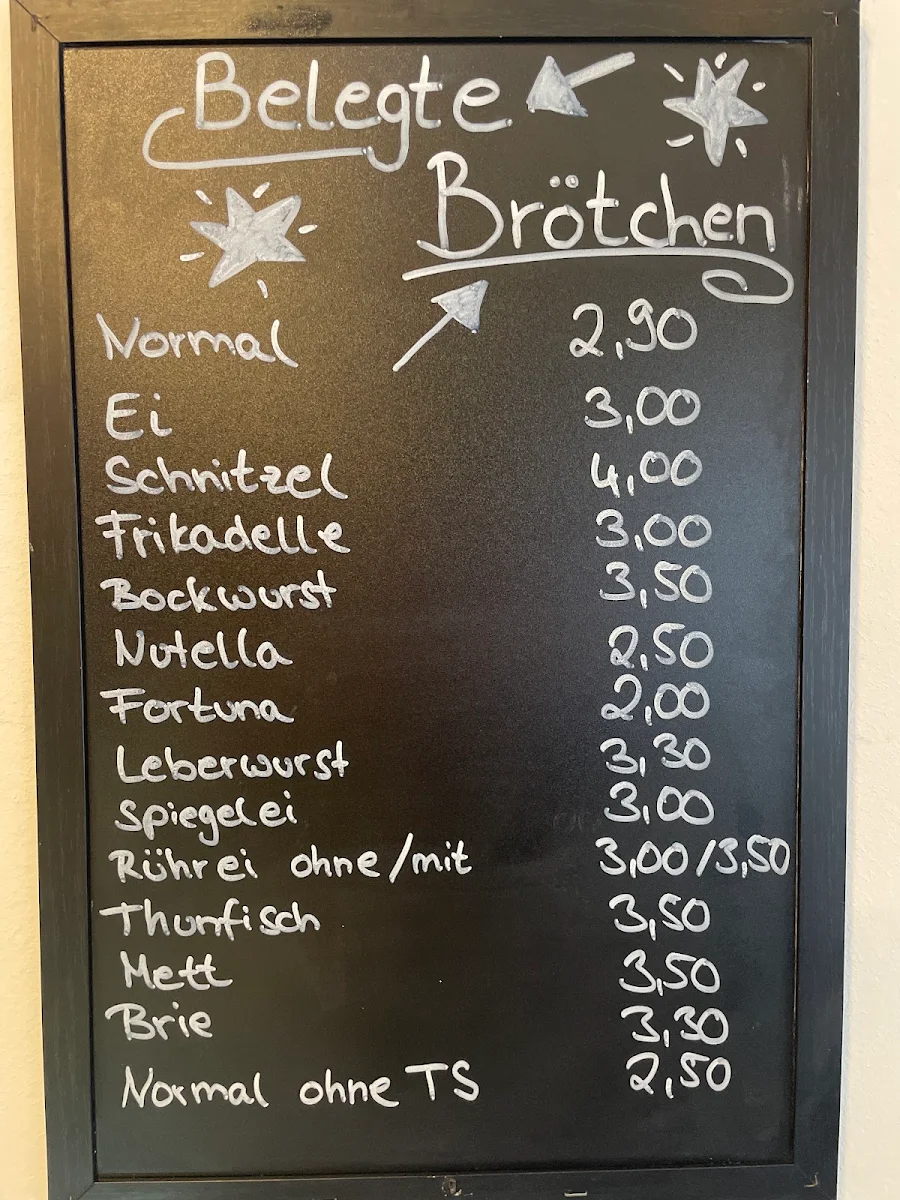 Belegte
Brötchen
Normal 2,90
Ei 3,00
Schnitzel 4,00
Frikadelle 3,00
Bockwurst 3,50
Nutella 2,50
Fortuna 2,00
Leberwurst 3,30
Spiegelei 3,00
Rührei ohne/mit 3,00/3,50
Thunfisch 3,50
Mett 3,50
Brie 3,30
Normal ohne TS 2,50